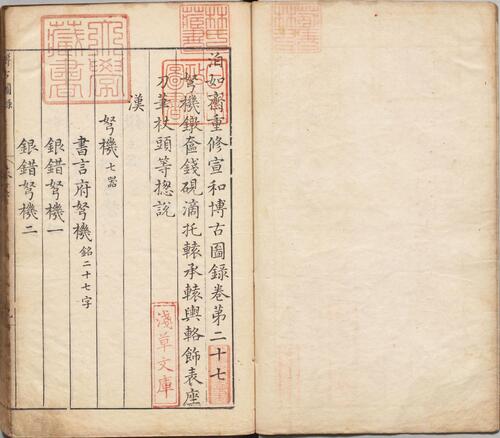 泊如齋重修宣和博古圖錄卷第二十七
弩機鐓奩錢硯滴托轅承轅輿輅飾表座
刀筆杖頭等揔說
漢
弩機七器
書言府弩機銘二十七字
銀錯弩機一
銀錯弩機二
淺草文庫
大學藏書
林氏藏書